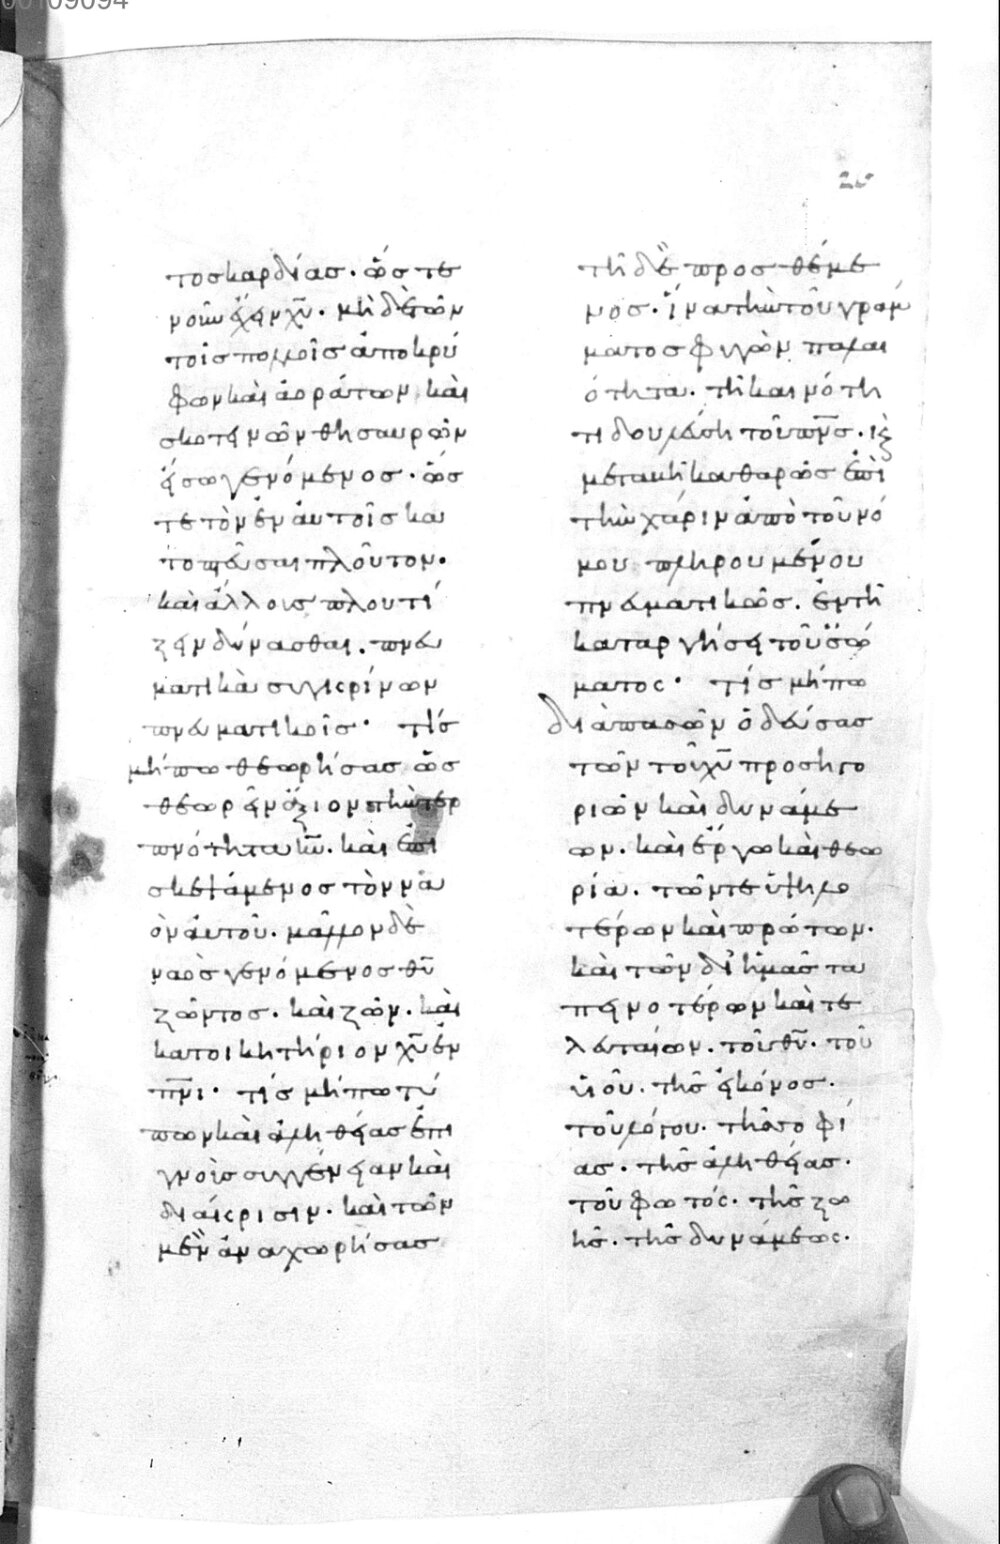 00109094
τοσ καρδίασ. ὥστε
νοῦν ἔχειν χυ. μηδὲ τῶν
τοῖσ πολλοῖσ ἀποκρύ
φων καὶ ἀοράτων καὶ
σκοτεινῶν θησαυρῶν
εἴσω γενόμενοσ. ὥσ
τε τὸν ἐν αὐτοῖσ κα
τοπτεῦσαι πλοῦτον.
καὶ ἄλλουσ πλουτί
ζειν δύνασθαι. πνευ
ματικὰ συγκρίνων
πνευματικοῖσ. τίσ
μήπω θεωρήσασ ὡσ
θεωρεῖν ἄξιον τὴν τερ
πνότητα κυ. καὶ ἐπι
σκεψάμενοσ τὸν να
ὸν αὐτοῦ. μᾶλλον δὲ
ναὸσ γενόμενοσ θυ
ζῶντοσ. καὶ ζῶν. καὶ
κατοικητήριον χυ ἐν
πνι. τίσ μήπω τύ
πων καὶ ἀληθείασ ἐπι
γνοὺσ συγγένειαν καὶ
διάκρισιν. καὶ τῶν
μὲν ἀναχωρήσασ
τῆ δὲ προσθέμε
νοσ. ἵνα τὴν τοῦ γράμ
ματοσ φυγὼν παλαι
ότητα. τῆ καινότη
τι δουλεύση τοῦ πνσ. κ
μεταβῆ καθαρῶσ ἐπὶ
τὴν χάριν ἀπὸ τοῦ νό
μου πληρουμένου
πνευματικῶσ. ἐν τῆ
καταργήσει τοῦ σώ
ματοσ. τίσ μήπω
διὰ πασῶν ὁδεύσασ
τῶν τοῦ χυ προσηγο
ριῶν καὶ δυνάμε
ων. καὶ ἔργω καὶ θεω
ρία. τῶν τε ὑψηλο
τέρων καὶ πρώτων.
καὶ τῶν δι ἡμᾶσ τα
πεινοτέρων καὶ τε
λευταίων. τοῦ θυ. τοῦ
υἱοῦ. τῆσ εἰκόνοσ.
τοῦ λόγου. τῆσ σοφί
ασ. τῆσ ἀληθείασ.
τοῦ φωτόσ. τῆσ ζω
ῆσ. τῆσ δυνάμεωσ.